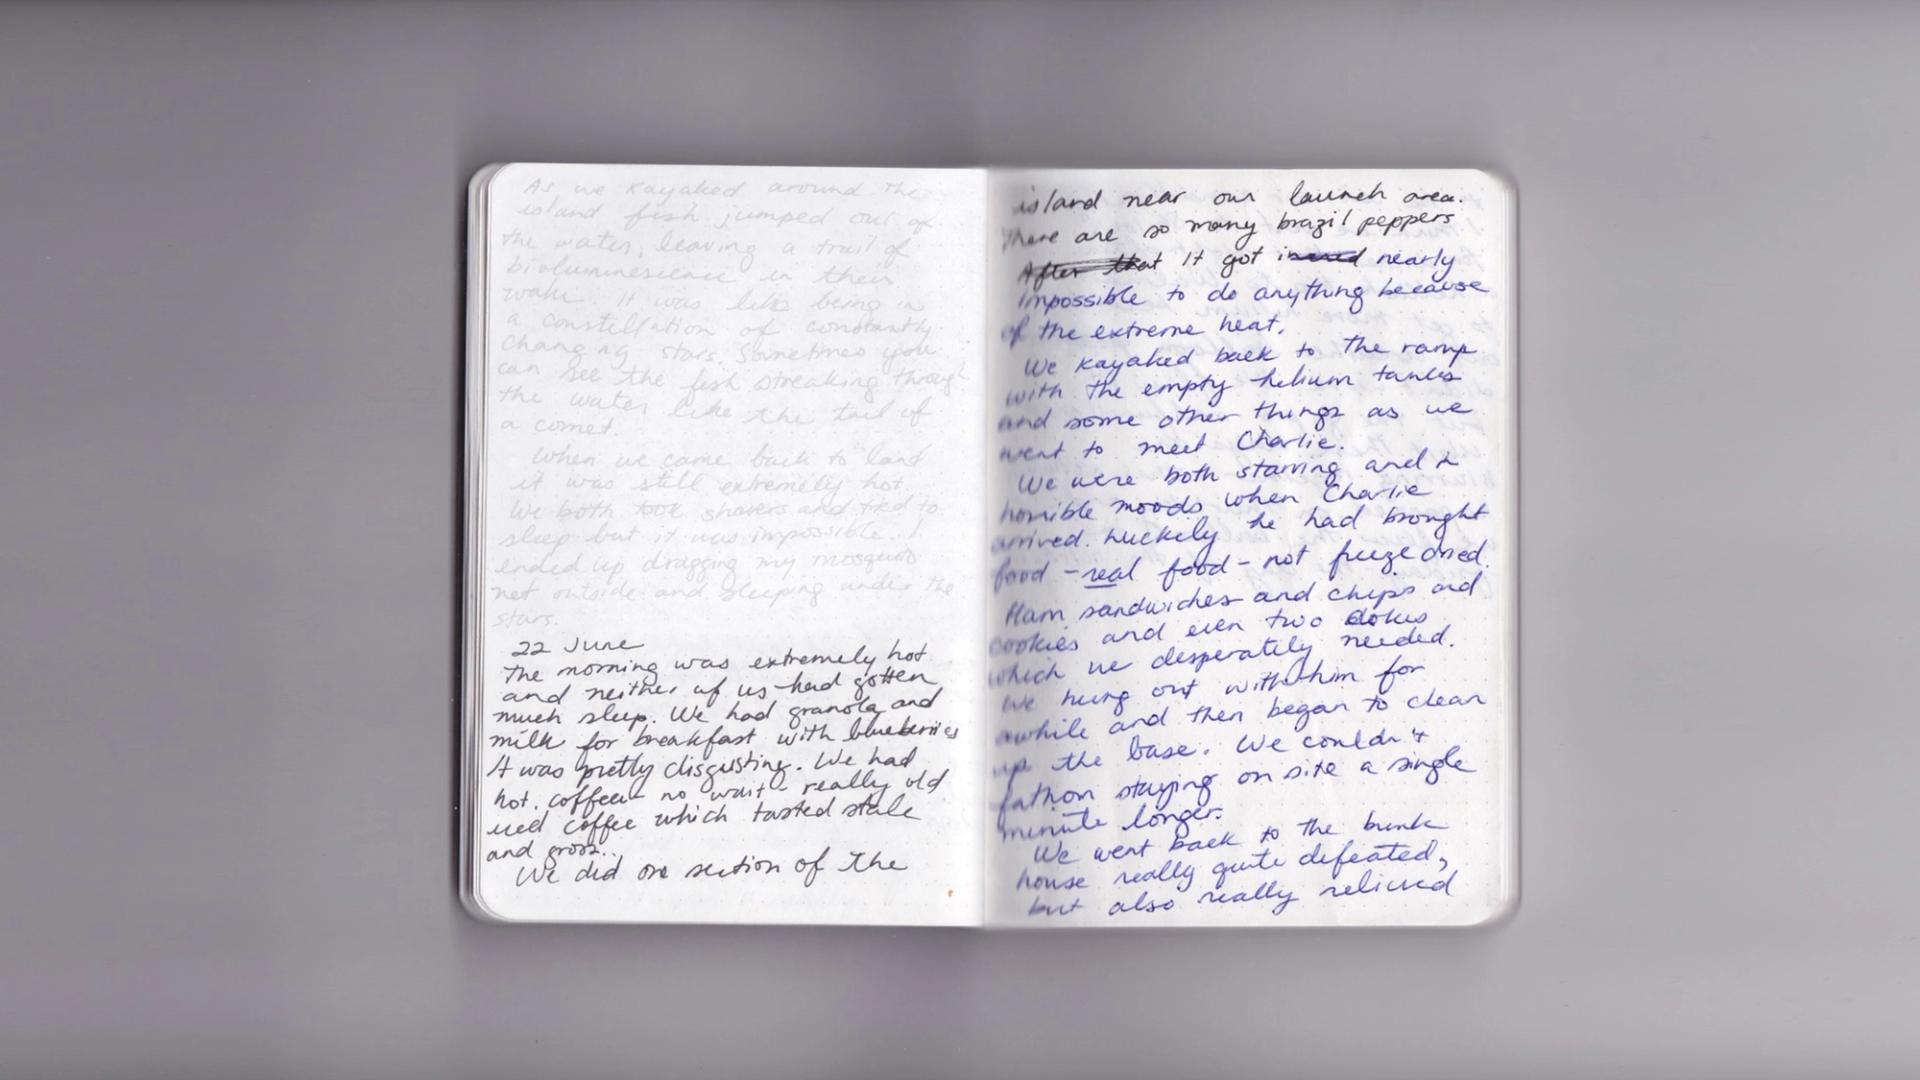 As we kayaked around the
island fish jumped out of
the water, leaving a trail of
bioluminescence in their
wake. It was like being in
a constellation of constantly
changing stars. Sometimes you
can see the fish streaking through
the water like the tail of
a comet.
When we came back to land
it was still extremely hot.
We both took showers and tried to
sleep but it was impossible. I
ended up dragging my mosquito
net outside and sleeping under the
stars.
22 June
The morning was extremely hot
and neither of us had gotten
much sleep. We had granola and
milk for breakfast with blueberries
It was pretty disgusting. We had
hot. coffee - no wait - really old
iced coffee which tasted stale
and gross.
We did one section of the
island near our launch area.
There are so many brazil peppers
After that It got nearly
impossible to do anything because
of the extreme heat.
We kayaked back to the ramp
with the empty helium tanks
and some other things as we
went to meet Charlie.
We were both starving and in
horrible moods when Charlie
arrived. Luckily he had brought
food - real food - not freeze dried.
Ham sandwiches and chips and
cookies and even two cokes
which we desperately needed.
We hung out with him for
awhile and then began to clean
up the base. We couldn't
fathom staying on site a single
minute longer.
We went back to the bunk
house really quite defeated,
but also really relieved